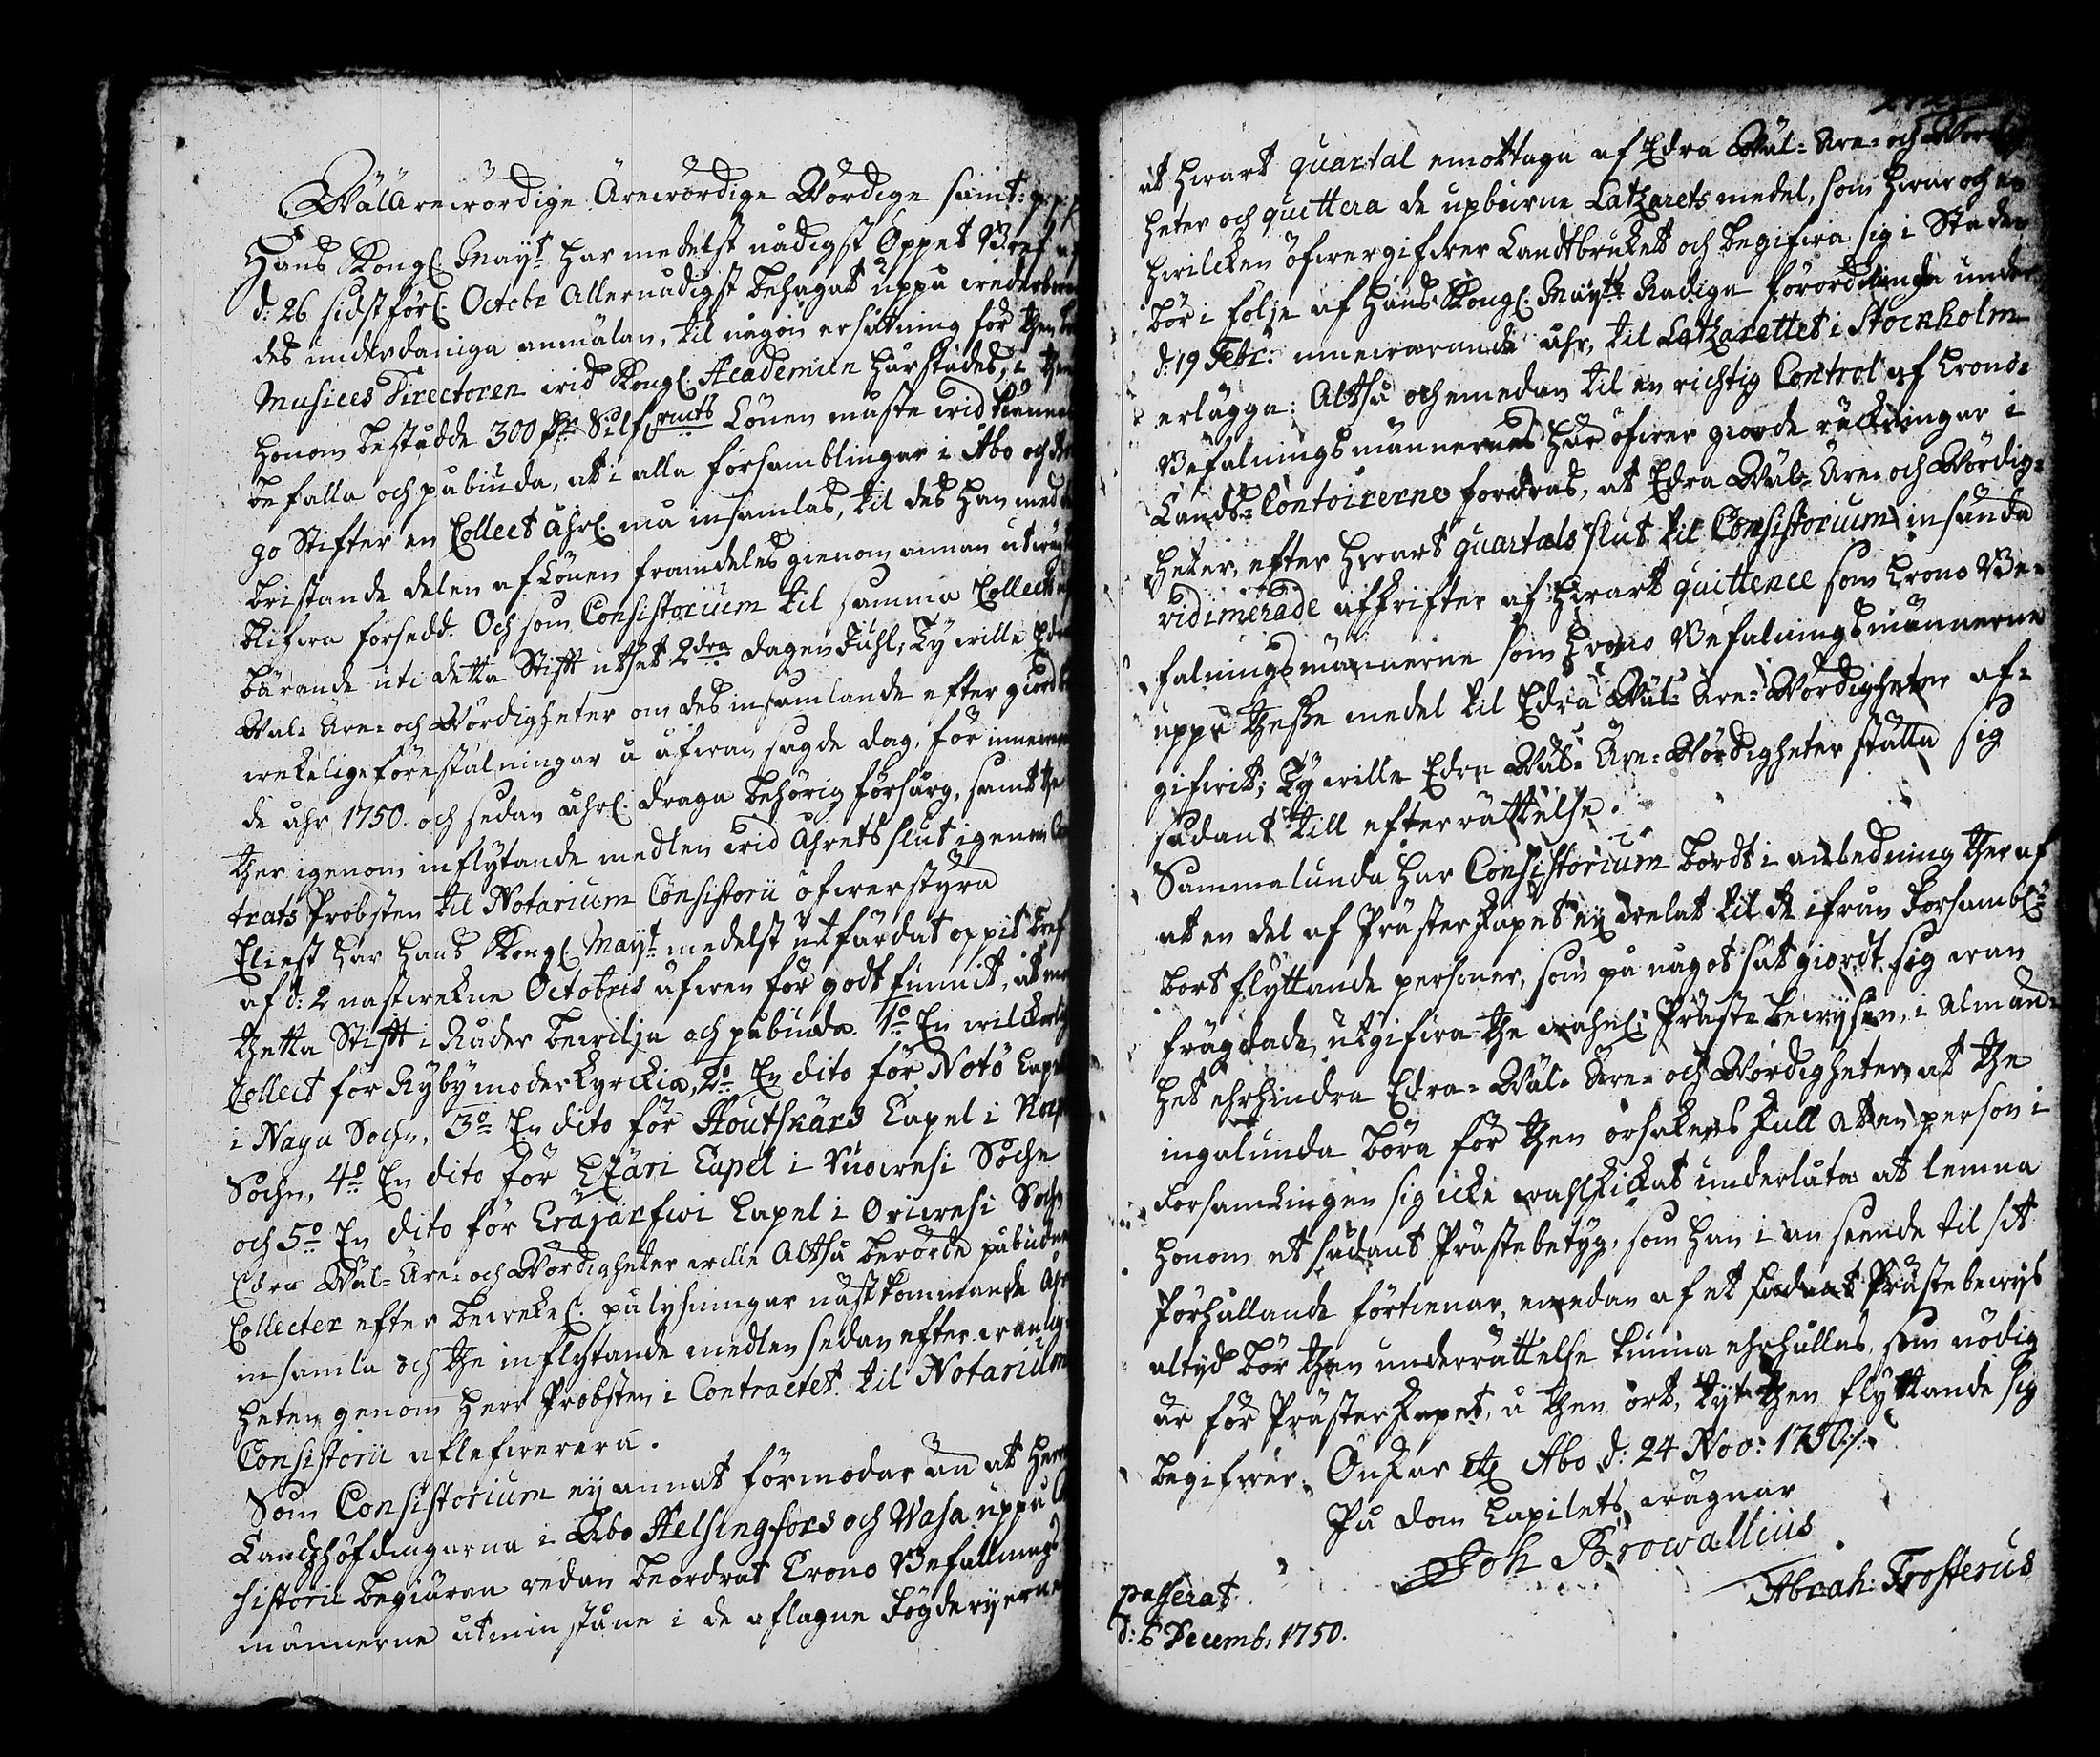 WälÄrewördige Ärewördige Wördige samt: p:p:
Hans Kongl: Mayt har medelst nådigst Öppet Bref af
d: 26 sidstförl: Octobr Allernådigst behagat uppå
des underdåniga anmälan, til någon ersättning för then
Musices Directoren wid Kongl: Academien härstädes, i then
honom bestådde 300 dr Silf:mts Lönen måste wid kännas
befalla och påbiuda, at i alla församblingar i Åbo och
go Stifter en Collect åhrl: må insamlas, til des han med
bristande delen af Lönen framdeles gienom annan utwäg
blifwa försedd. Och som Consistorium til samma Collects
bärande uti detta Stift utsat 2dra dagen Juhl, Ty wille Edra
Wäl- Äre- och Wördigheter om des insamlande efter giorde
wekelige föreställningar å åfwan sagde dag, för innewaran
de åhr 1750. och sedan åhrl: draga behörig försorg, samt the
ther igenom inflytande medlen wid Åhrets slut igenom Con
trats Probsten til Notarium Consistorii öfwerstyra
Eliest har Hans Kongl: Mayt medelst utfärdat oppit bref
af d: 2 nästwekne Octobris äfwen för godt funnit, at
thetta Stift i Nåder bewilja och påbiuda. 1o En wilckorlig
Collect för Kyby moderkyrckia, 2o En dito för Nötö Capel
i Nagu Sochn, 3o En dito för Houtskärs Capel i Korpo
Sochn, 4o En dito för Etzäri Capel i Ruowesi Sochn
och 5o En dito för Eräjärfwi Capel i Oriwesi Sochn
Edra Wäl- Äre- och Wördigheter wille Altså berörde påbudne
Collecter efter bewekel: pålysningar nästkommande Åhr
insamla och the inflytande medlen sedan efter wanlig
heten genom Herr Probsten i Contractet til Notarium
Consistorii aflefwerera.
Som Consistorium ej annat förmodar än at Herrar
Landzhöfdingarna i Åbo Helsingfors och Wasa uppå Con
sistorii begiäran redan beordrat Crono Befallnings
männerne åtminstone i de aflägne Fögderyerne
at hwart quartal emottaga af Edra Wäl- Äre- och Wördig
heter och quittera de upburne Latzarets medel, som hwar och en
hwilcken öfwergifwer Landtbruket och begifwa sig i Städer
bör i följe af Hans Kongl: Mayts Nådiga förordnande under
d: 19 Febr: innewarande åhr, til Latzarettet i Stockholm
erlägga: Altså och emedan til en richtig Control af Crono-
Befalningsmännernes här öfwer giorde räckningar i
Landts-Contoirerne fordras, at Edra Wäl- Äre- och Wördig-
heter, efter hwart quartals slut til Consistorium insända
vidimerade afskrifter af hwart quittence som Crono Be-
falningsmännerne som Crono Befalningsmännerne
uppå thesse medel til Edra Wäl- Äre- Wördigheter af-
gifwit; Ty wille Edra Wäl- Äre- Wördigheter ställa sig
sådant till efterrättelse.
Sammalunda har Consistorium bordt i anledning ther af
at en del af Prästerskapet ej welat til de ifrån Forsambl:
bortflyttande personer, som på något sät giordt sig wan
frägdade, utgifwa the wahnl: Prästebewysen, i Almän-
het ehrhindra Edra- Wäl- Äre- och Wördigheter, at the
ingalunda böra för then orsakens skull at en person i
Forsamlingen sig icke wahlskickat underlåta at lemna
honom et sådant Prästebetyg, som han i anseende til sit
förhållande förtienar, emedan af et sådant Prästebewys
altyd bör then underrättelse kunna ehrhållas, som nödig
är för Prästerskapet, å then ort, tyt then flyttande sig
begifwer. Önskar etc Åbo d: 24 Nov: 1750:/:
På dom Capitlets wägnar
Joh Browallius
Abrah: Frosterus
passerat
d: 6 Decemb: 1750.